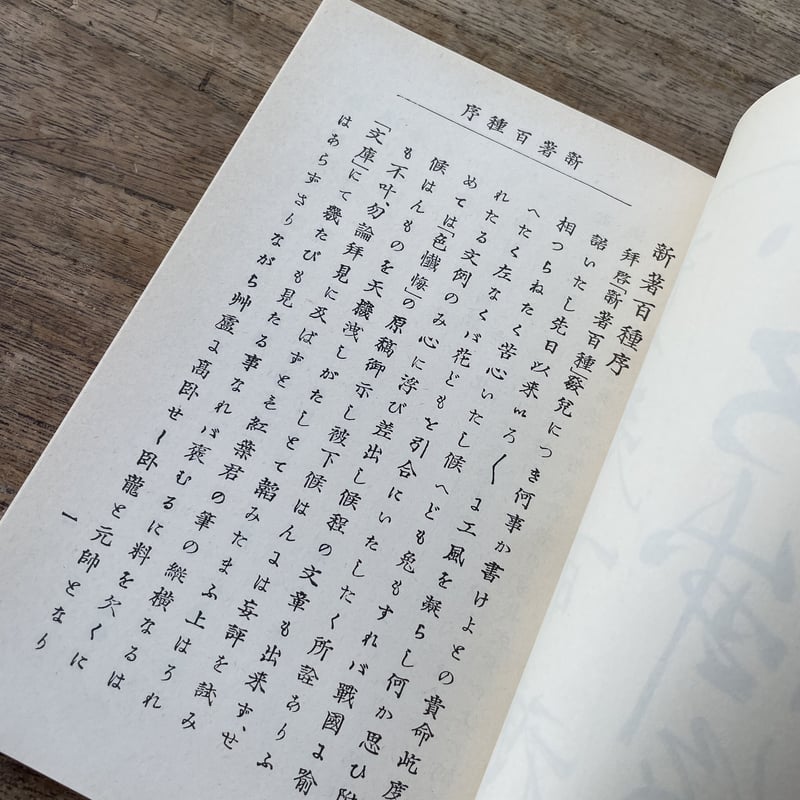 新著百種序
新著百種序
拜啓「新著百種」發兌につき何事か書けよとの貴命屹度
諾いたし先日以来いろ〱に工風を凝らし何か思ひ附
相つらねたく苦心いたし候へども兎もすれバ戰國に喩
へたく左なくバ花どもと引合にいたしたく所詮ありふ
れたる文例のみ心に浮び差出し候程の文章も出来ず、せ
めては「色懺悔」の原稿御示し被下候はんには妄評を試み
候はんものを天機洩しがたしとて韜みたまふ上はろれ
も不叶、勿論拜見に及ばずとも紅葉君の筆の縱横なるは
「文庫」にて幾たびも見たる事なれバ褒むるに料を欠くに
はあらずさりながら艸廬に高臥せし臥龍と元帥となり
一